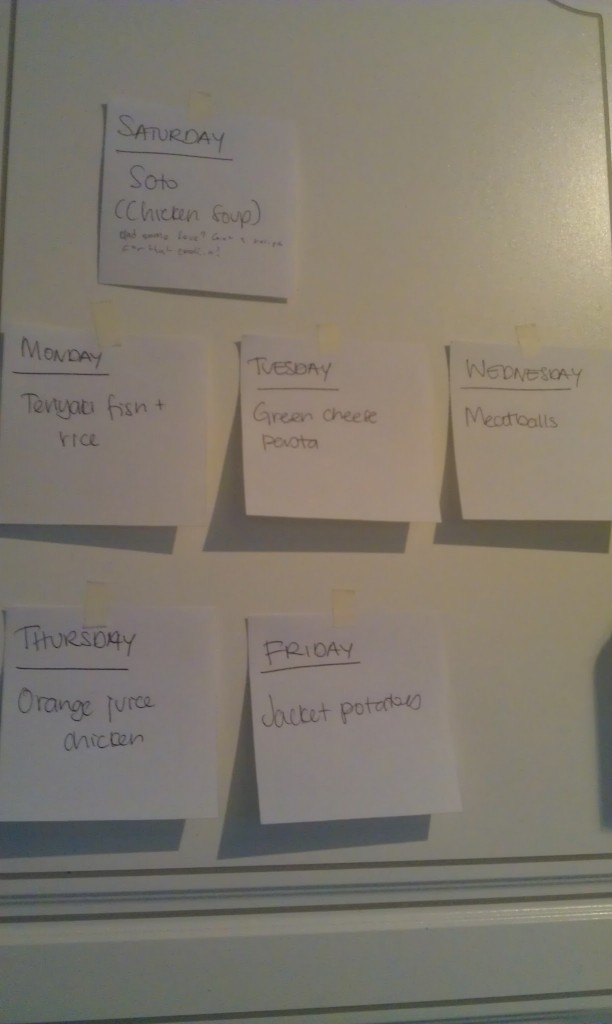 SATURDAY
Soto
(Chicken Soup)
MONDAY
Teriyaki fish +
rice
TUESDAY
Green cheese
pasta
WEDNESDAY
Meatballs
THURSDAY
Orange juice
chicken
FRIDAY
Jacket potatoes